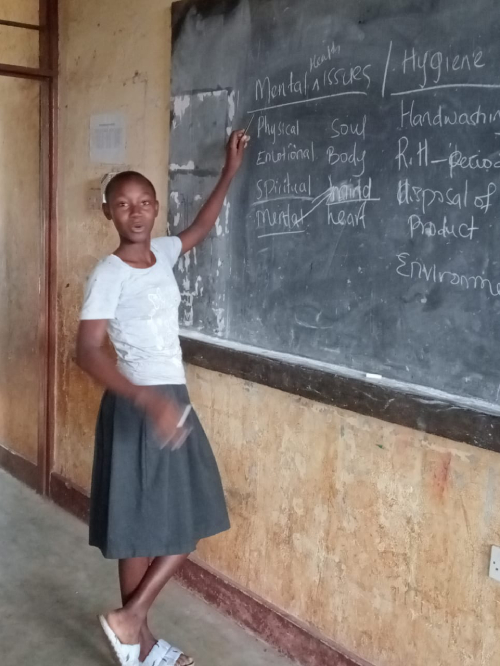 Mental Health issues / Hygiene
Physical Soul Handwashin
Emotional Body R.H - period
Spiritual mind disposal of
mental heart Product
Environme